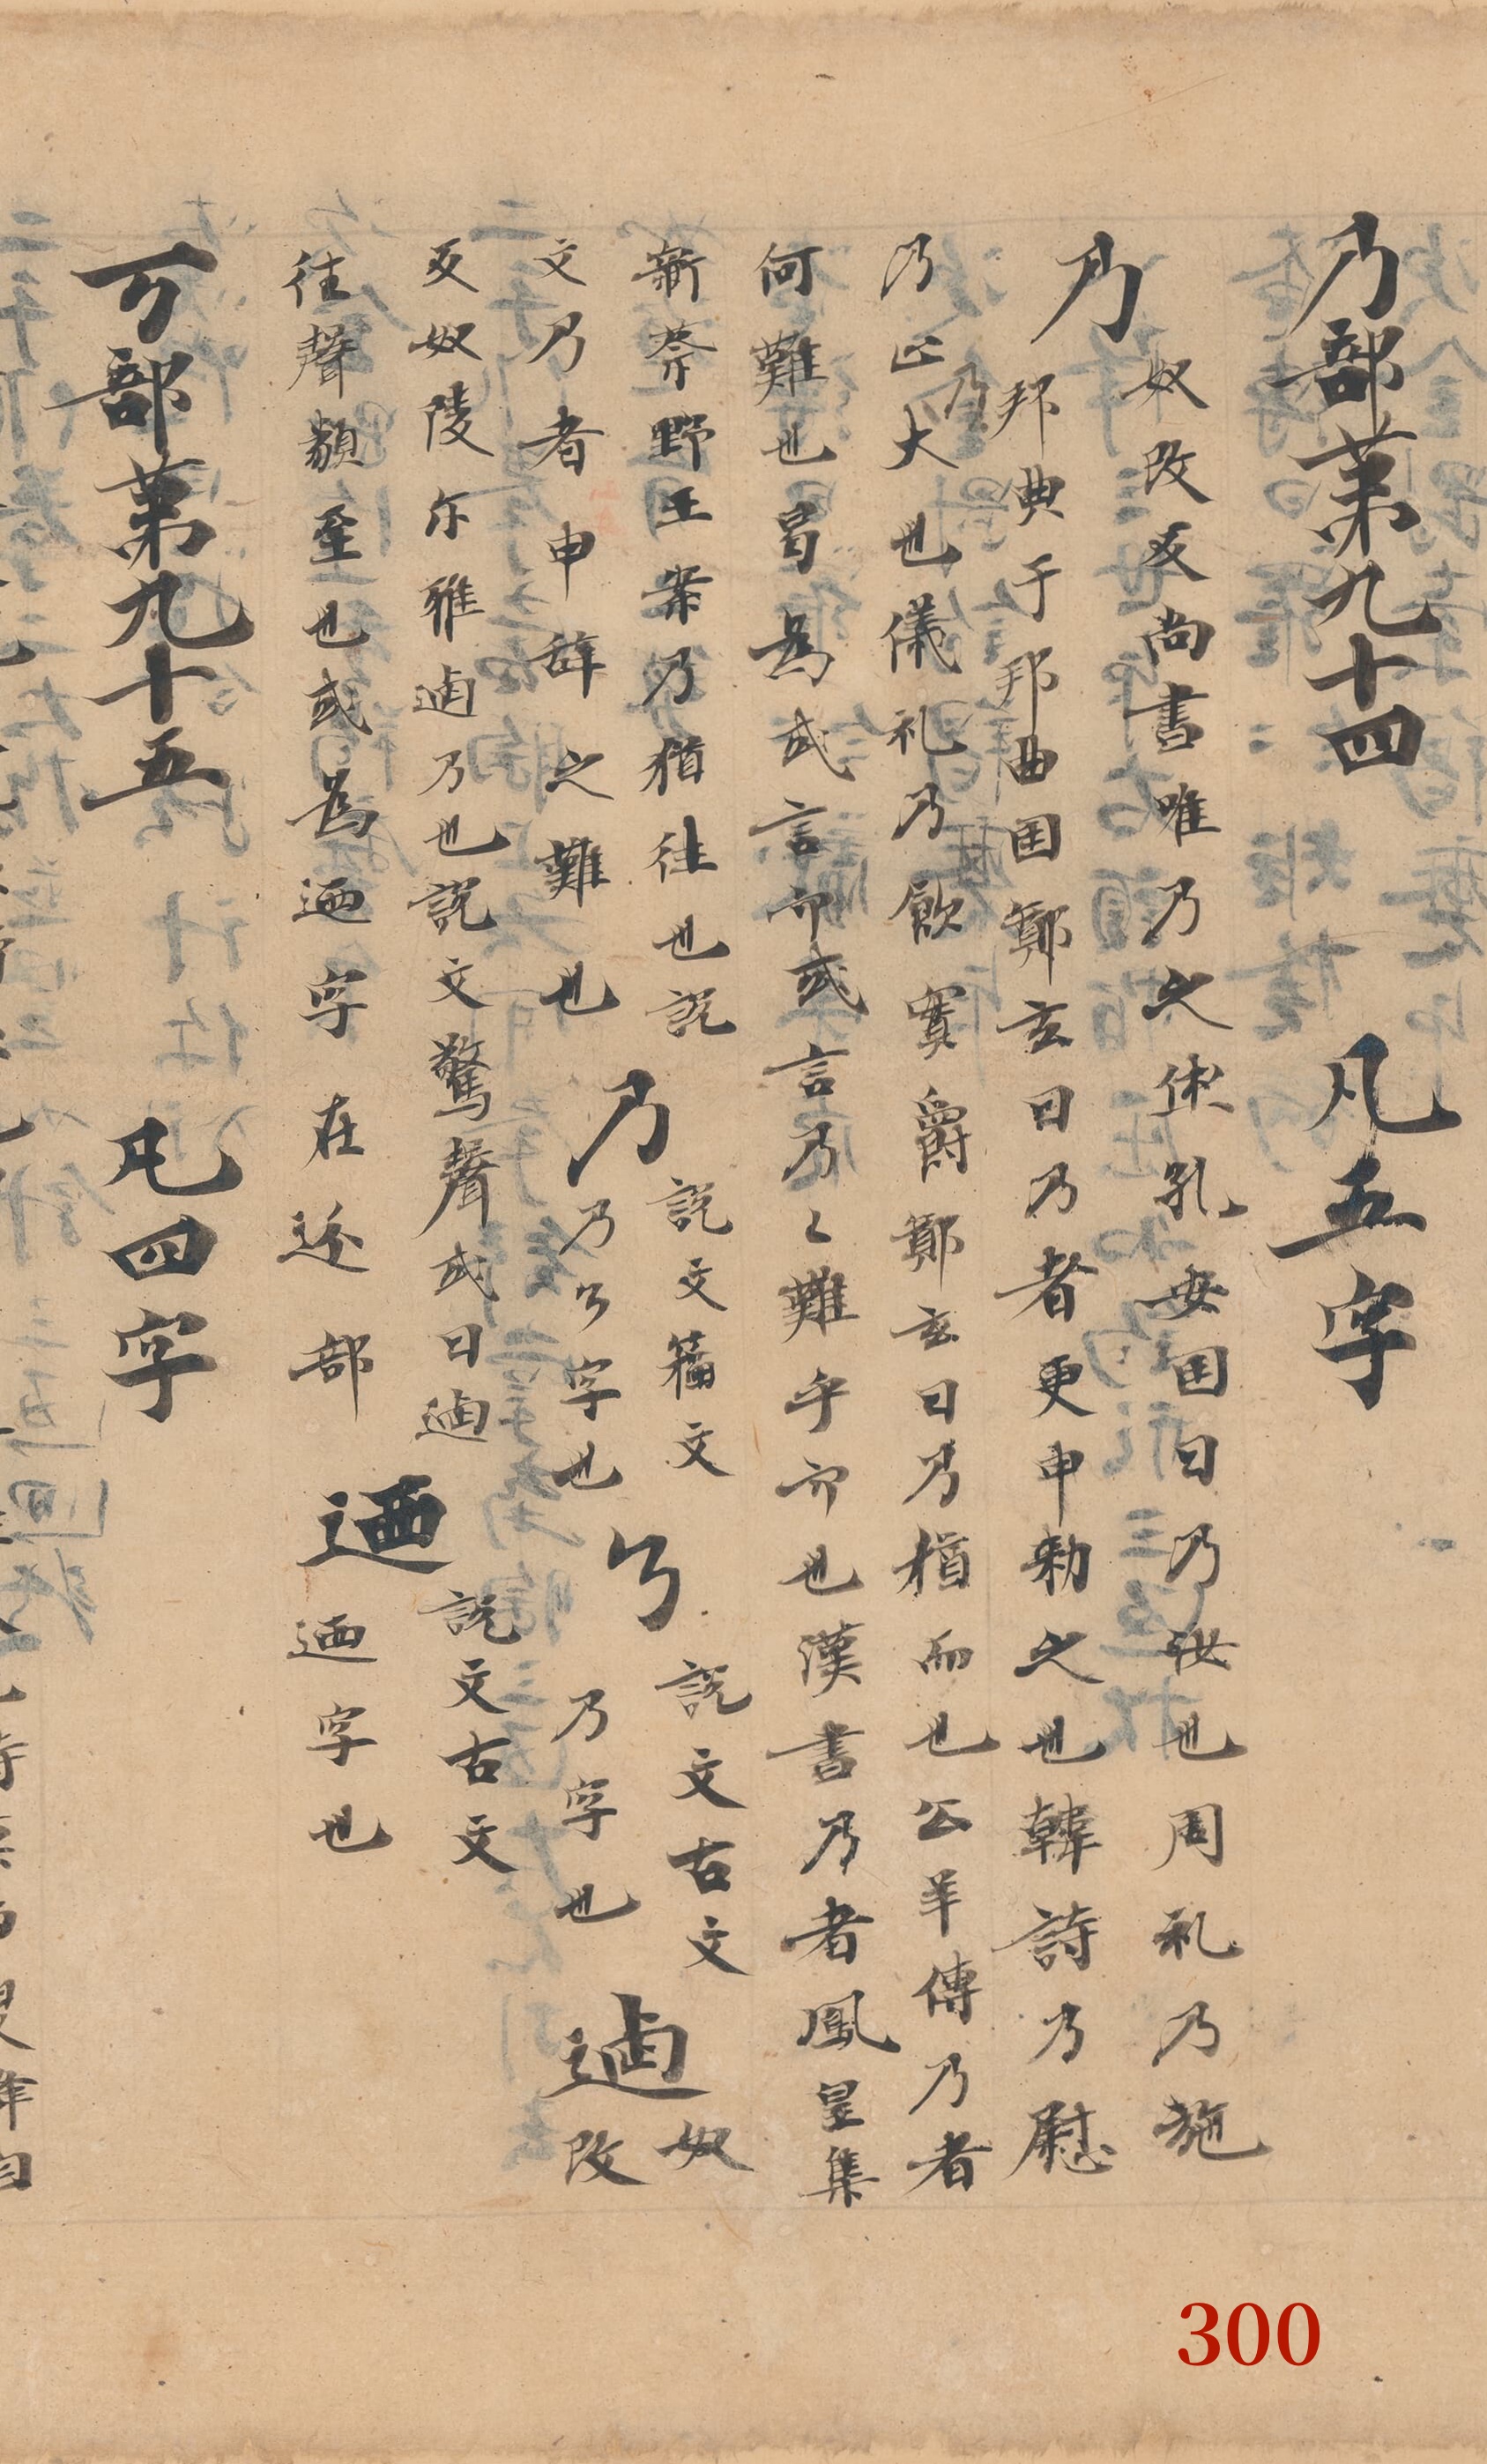 乃部第九十四　凡五字
乃
奴改反尚書唯乃之休孔安国曰乃汝也周礼乃施
邦典于邦曲国鄭玄曰乃者更申勑之也韓詩乃慰
乃止乃大也儀礼乃飲實爵鄭玄曰乃猶而也公羊傳乃者
何難也曷為或言而或言乃〻難乎而也漢書乃者鳳皇集
新蔡野王案乃猶往也説
文乃者申辞之難也
乃
説文籀文
乃字也
説文古文
乃字也
逌
奴
改
反奴陵尓雅逌乃也説文驚聲或曰逌
往聲類至也或為迺字在辵部
迺
説文古文
迺字也
丂部第九十五　凡四字
300